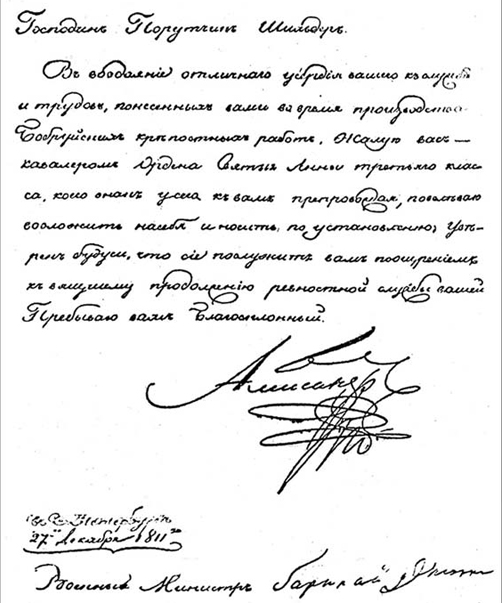 Господинъ Порутчикъ Шильдеръ.
Въ воздаяніе отличнаго усердія вашего къ службѣ
и трудовъ, понесенныхъ вами во время производства
Бобруйскихъ крѣпостныхъ работъ, Жалую васъ —
кавалеромъ Ордена Святыя Анны третьяго клас-
са, коего знакъ у сего къ вамъ препровождая, повелѣваю
возложить на себя и носить по установленію; увѣ-
ренъ будучи, что сіе послужитъ вамъ поощреніемъ
къ вящшему продолженію ревностной службы вашей
Пребываю вамъ благосклонный.
Александръ
въ С. Петербургѣ
27го Декабря 1811го
Военный Министръ Барклай де Толли